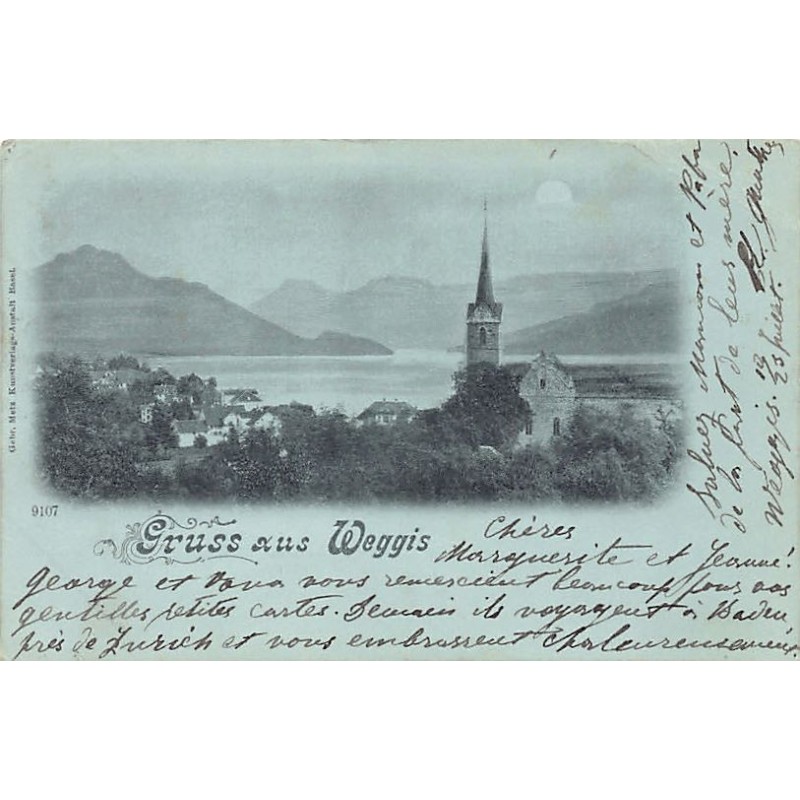 Gebr. Metz Kunstverlags-Anstalt Basel.
9107
Gruss aus Weggis
Chères
Marguerite et Jeanne!
George et vous remercient beaucoup pour vos
gentilles petites cartes. Demain ils voyagent à Baden
près de Zurich et vous embrassent chaleureusement.
Saluez Maman et Papa
de la part de leur mère.
Weggis. 19 23 Juillet.